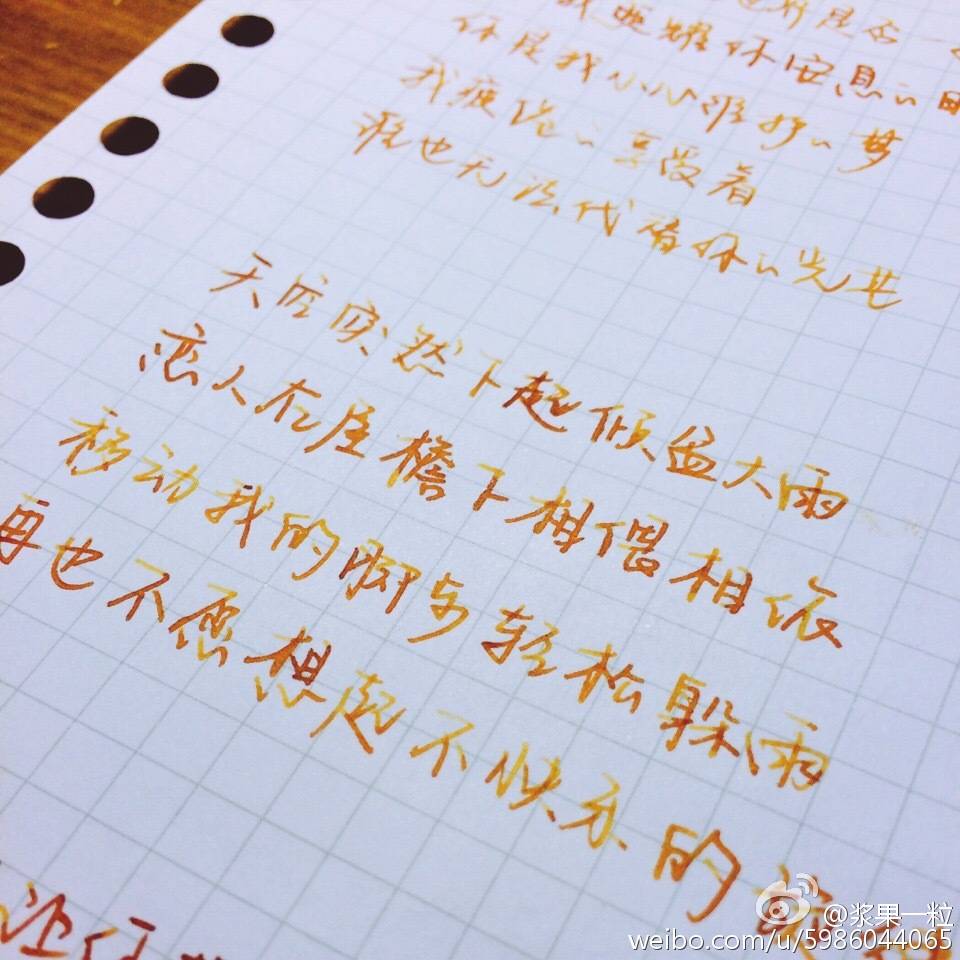 你是我小心维护的梦
我疲倦的享受着
谁也无法代替你的光芒
天空突然下起倾盆大雨
恋人在屋檐下相偎相依
移动我的脚步轻松躲雨
再也不愿想起不快乐的
还任
@浆果一粒
weibo.com/u/5986044065